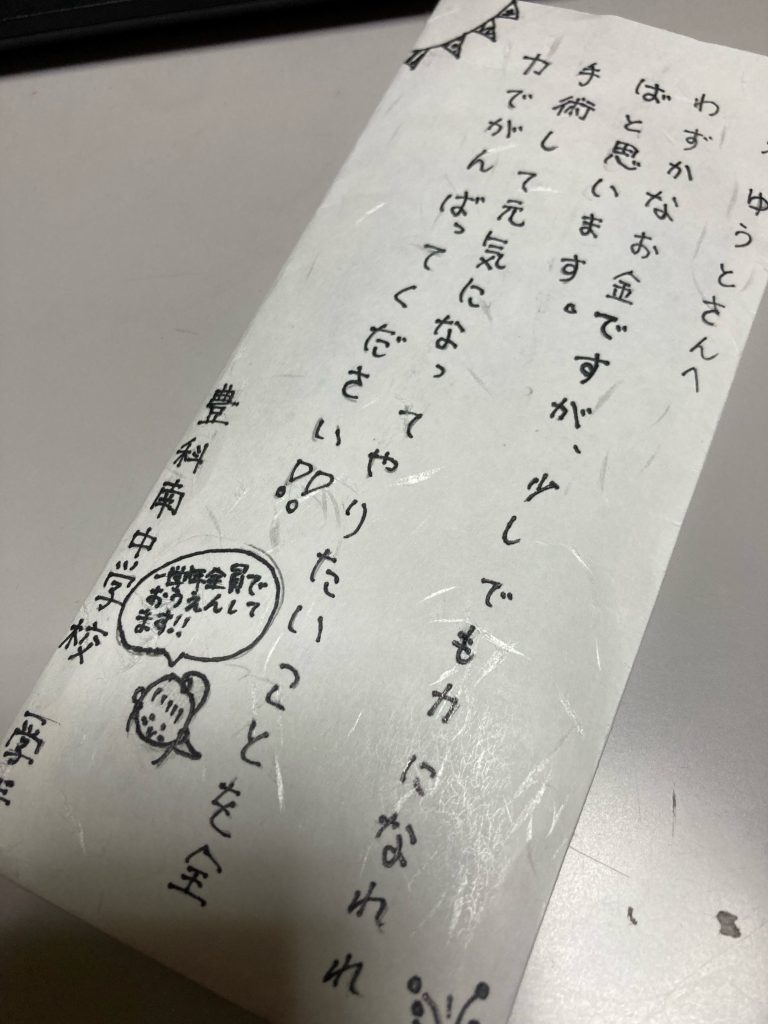 ゆうとさんへ
わずかなお金ですが、少しでも力になれれ
ばと思います。
手術して元気になってやりたいことを全
力でがんばってください!!
豊科南中学校 学
一学年全員で
おうえんして
ます!!